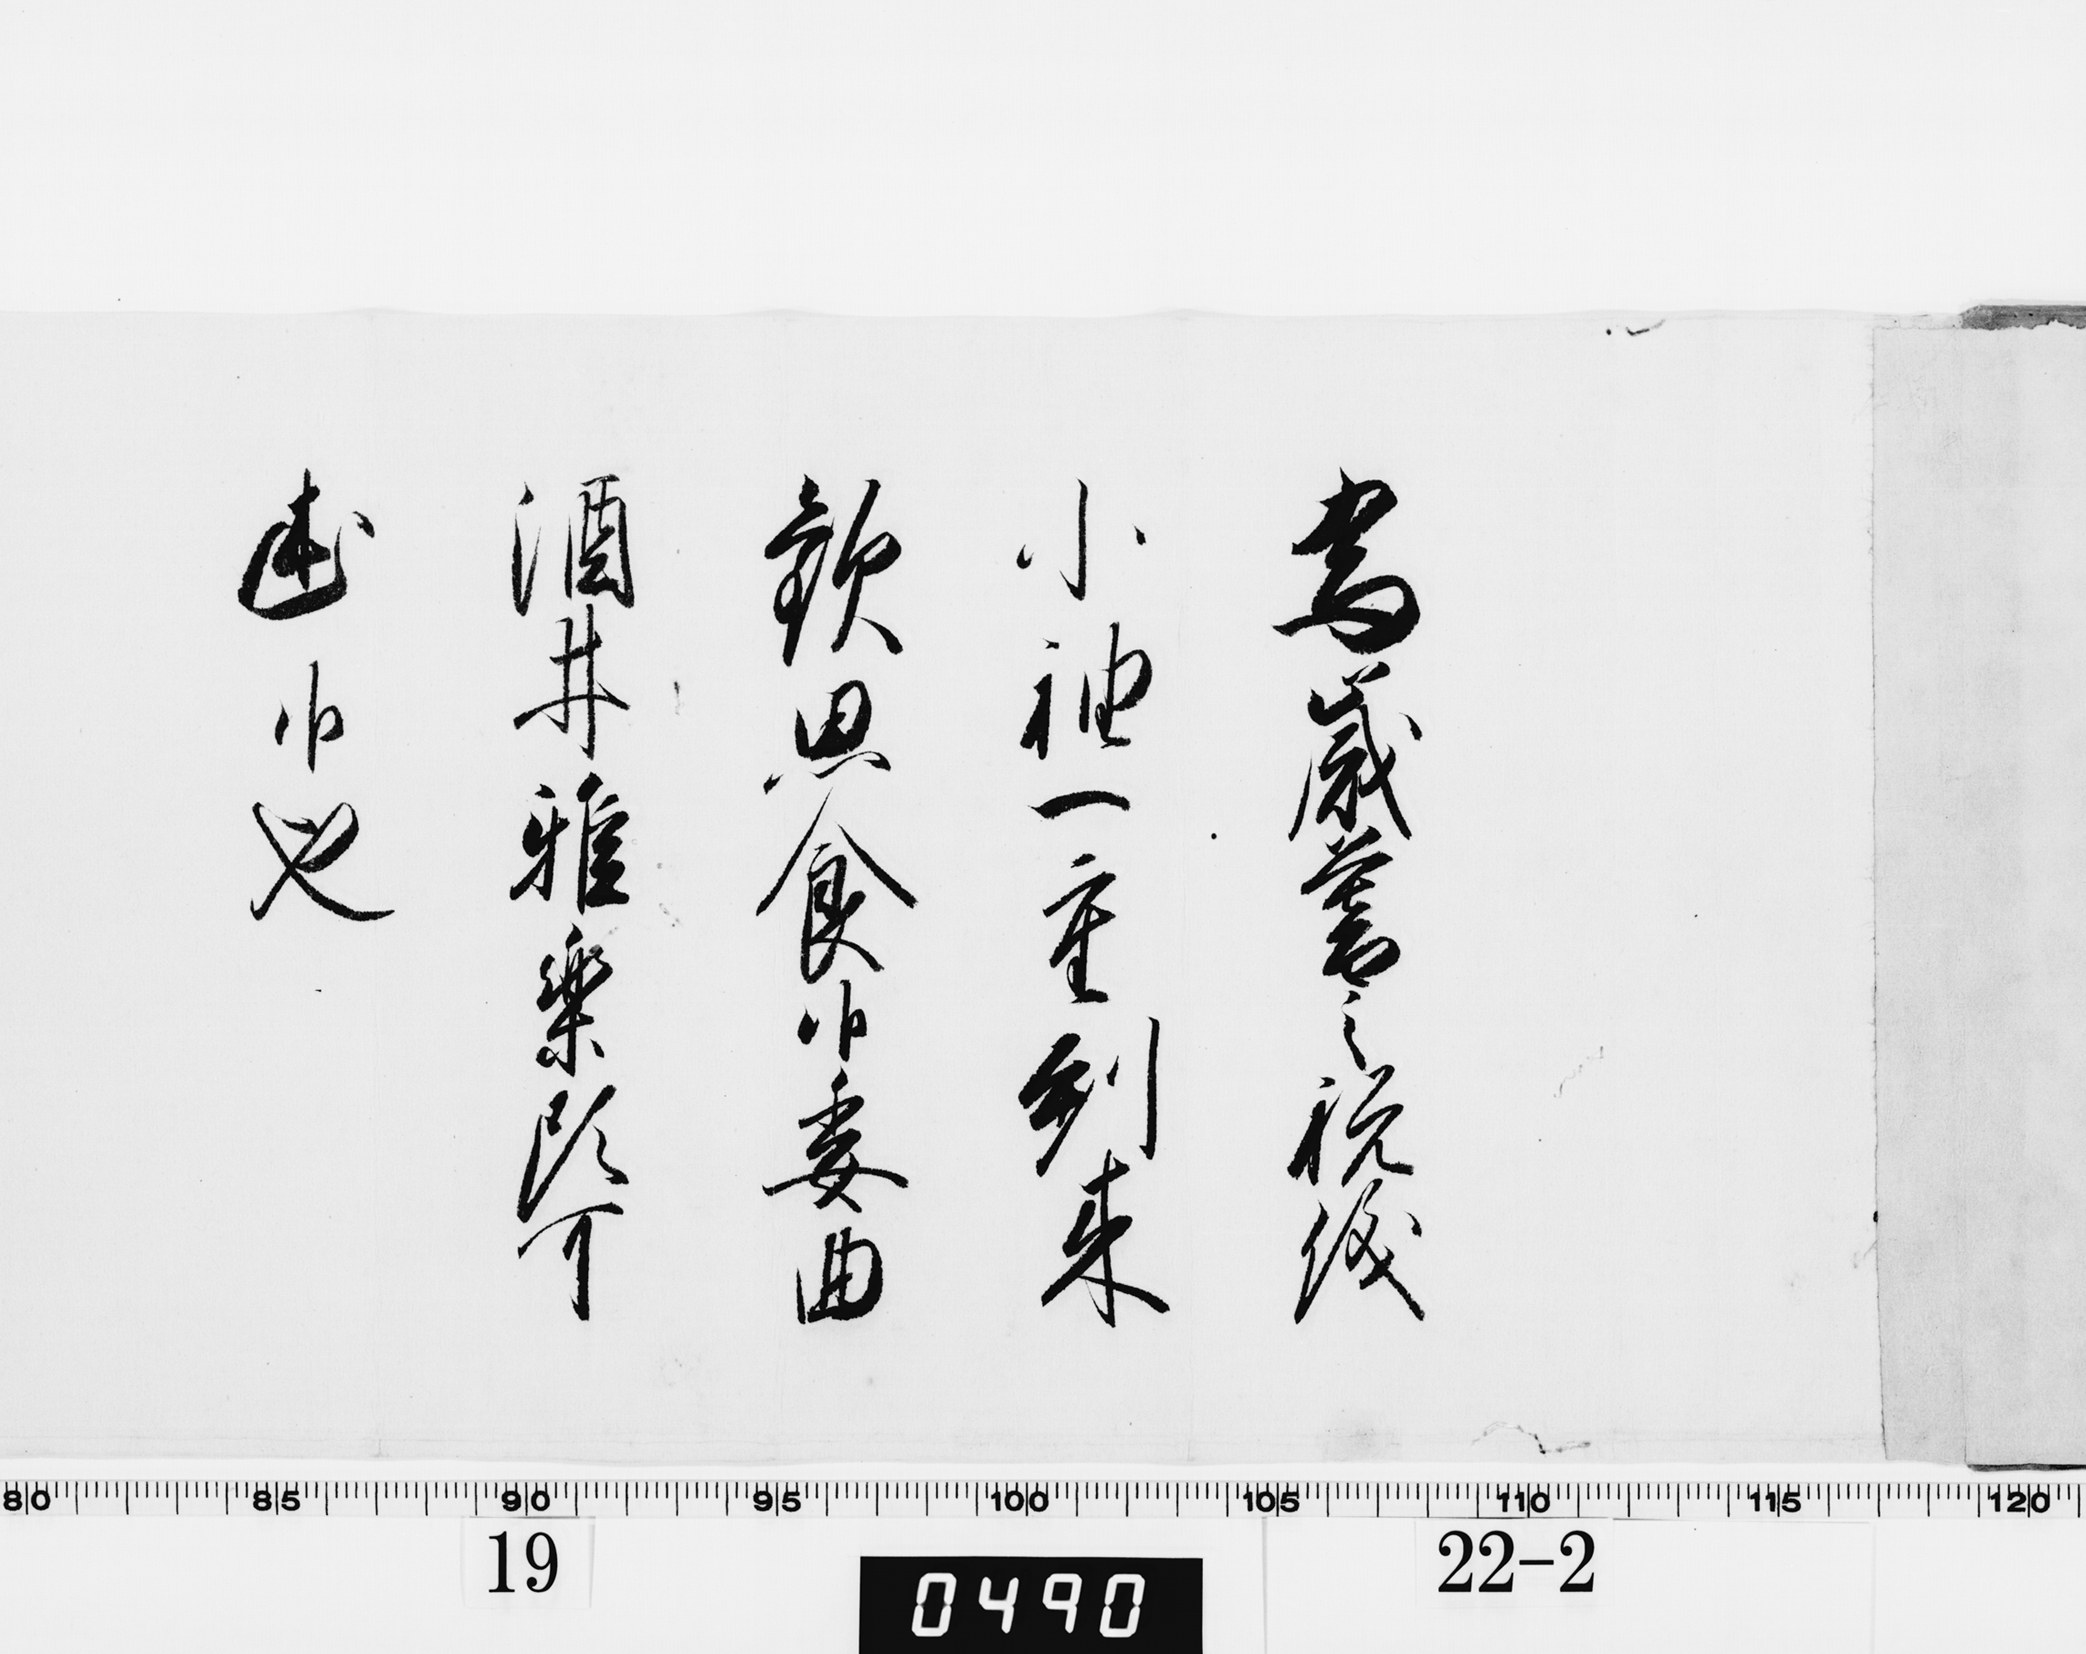 為歳暮之祝儀
小袖一重到来
歓思食候委曲
酒井雅楽頭可
述候也
80 85 90 95 100 105 110 115 120
19 0490 22-2